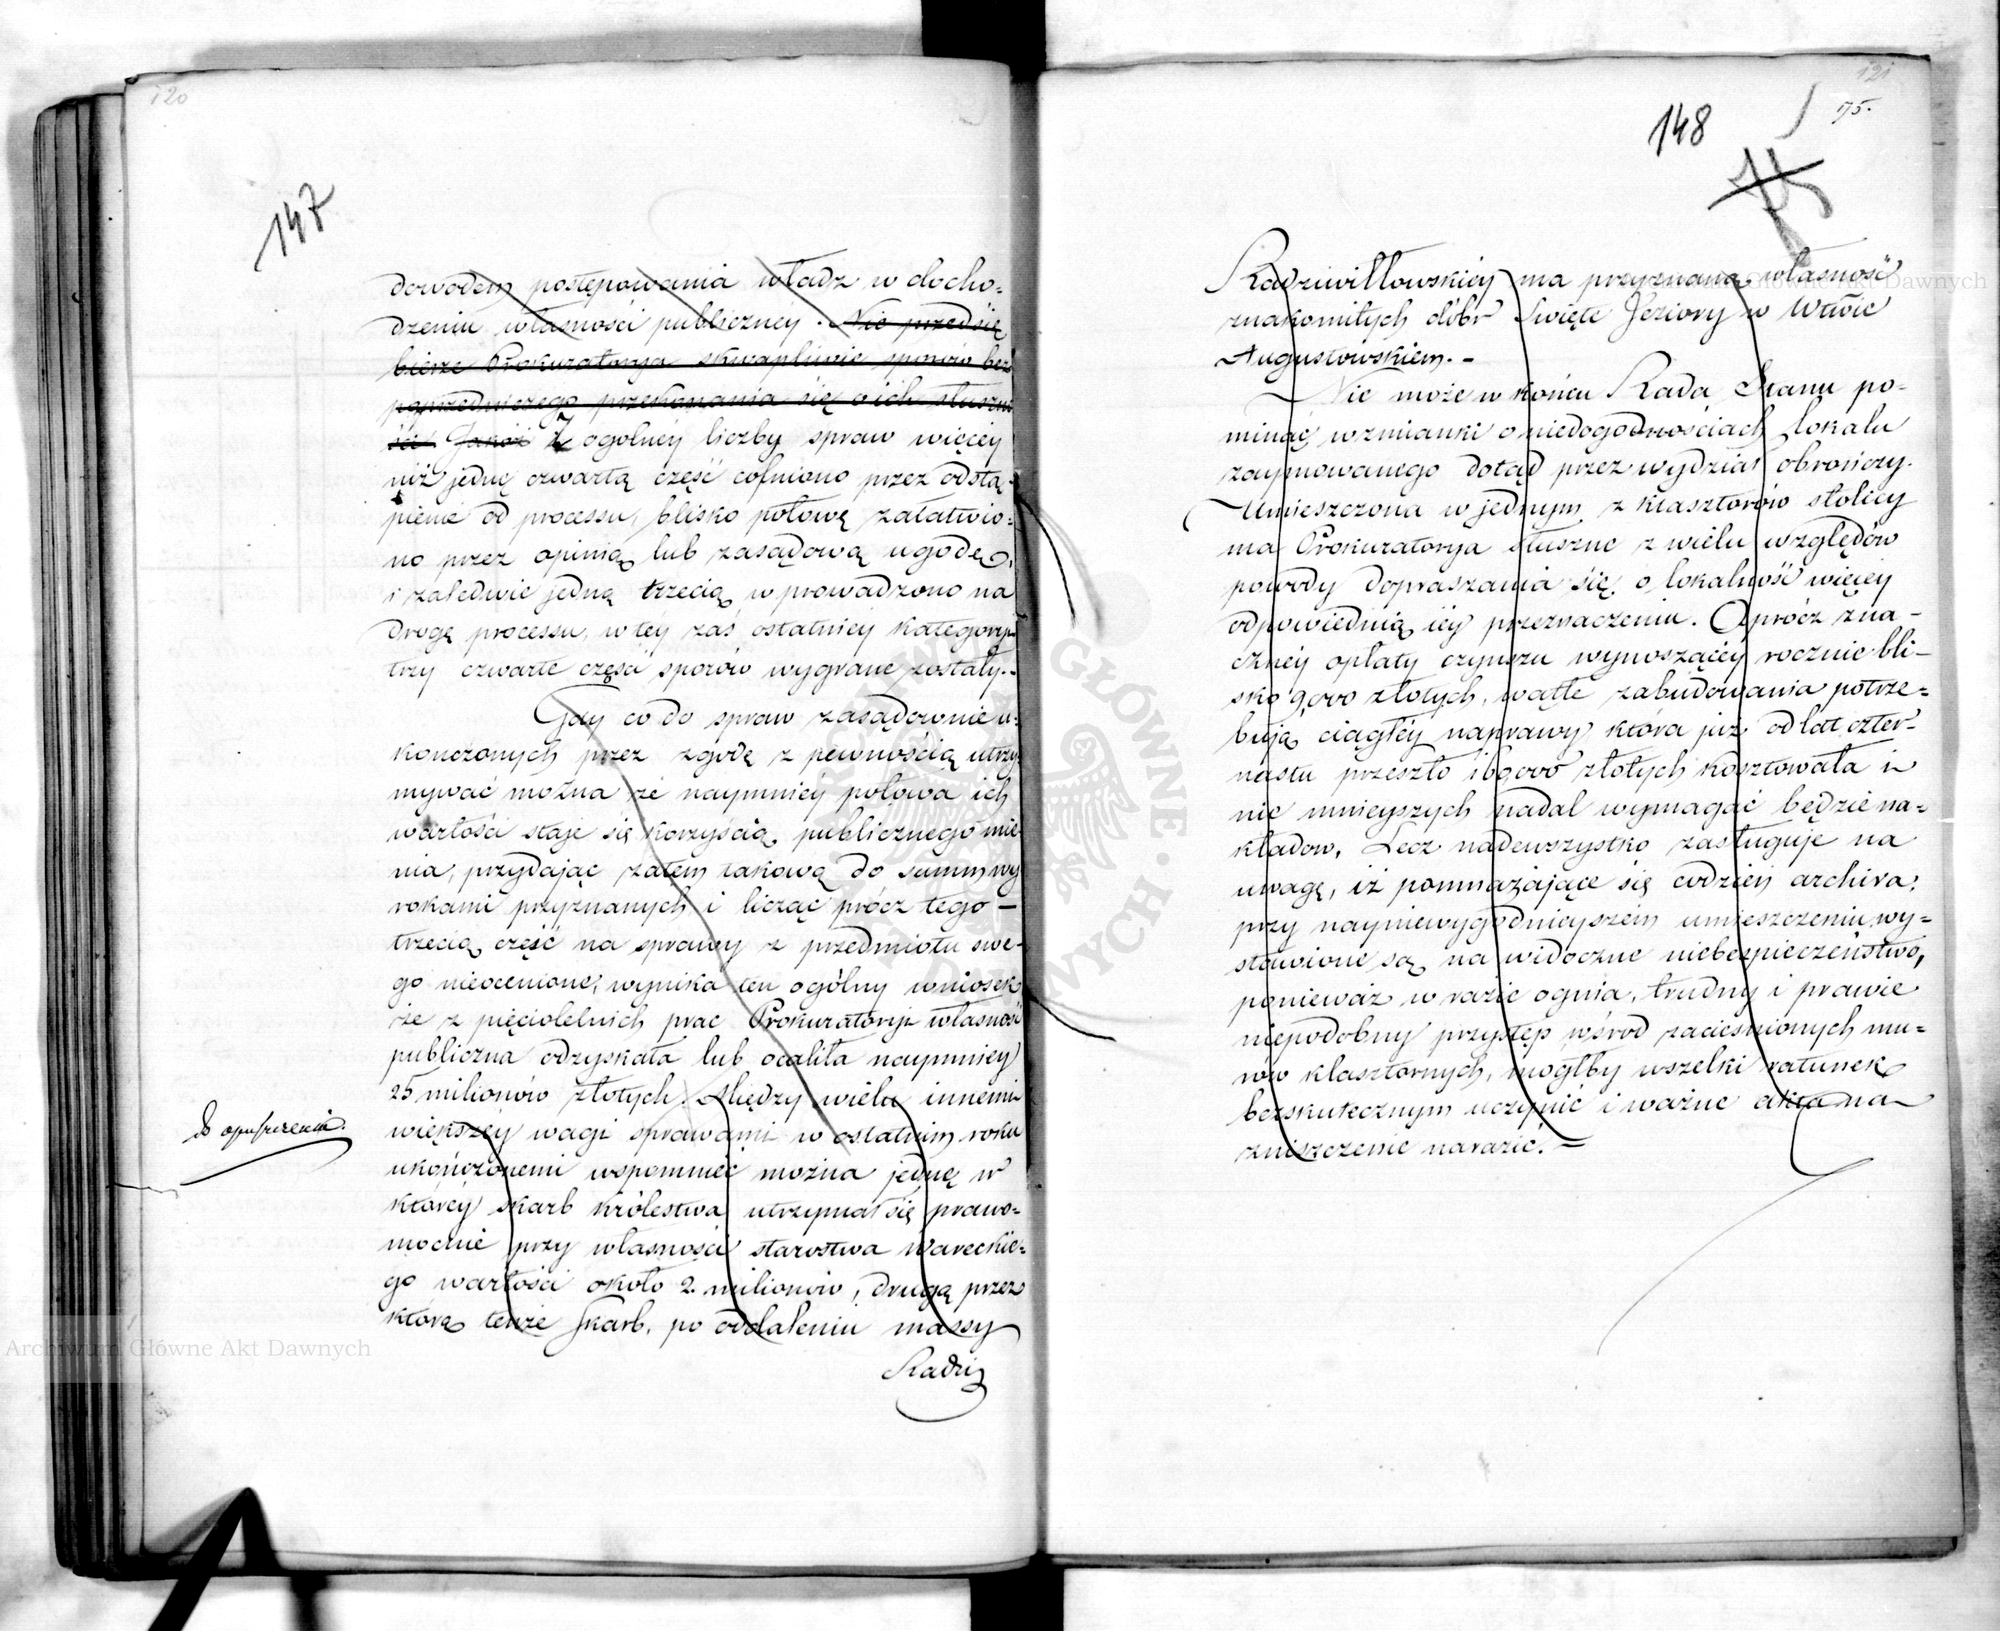 120
147
dowodem postępowania władz w docho-
dzeniu własności publiczney. Nie przedsię
bierze Prokuratorya skwapliwie sporów bez
poprzedniczego przekonania się o ich słuszno
ści. Jakoż Z ogolnéy liczby spraw więcéy
niż jednę czwartą część cofniono przez odstą-
pienie od processu, blisko połowę załatwio-
no przez opinią lub zasądową ugodę,
i zaledwie jedną trzecią wprowadzono na
drogę processu, w tey zaś ostatniey kategoryi
trzy czwarte części sporów wygrane zostały.-
Gdy co do spraw zasądownie u-
konczonych przez zgodę z pewnością utrzy-
mywać można że naymniéy połowa ich
wartości staje się korzyścią publicznego mie-
nia, przydając zatem takową do summ wy
rokami przyznanych i licząc prócz tego —
trzecią część na sprawy z przedmiotu swe-
go nieocenione, wynika ten ogólny wniosek
że z pięcioletnich prac Prokuratoryi własność
publiczna odzyskała lub ocaliła naymniey
25 milionów złotych. Między wielu innemi
większéy wagi sprawami w ostatnim roku
ukończonemi wspomnieć można jednę w
któréy skarb Królestwa utrzymał się prawo-
mocnie przy własności starostwa Wareckie-
go wartości około 2. milionów, drugą przez
którę tenże Skarb, po oddaleniu massy
Radzi
do opuszczenia.
121
75.
148
75
Radziwiłłowskiéy ma przyznaną własność
znakomitych dóbr Święte Jeziory w Wtwie
Augustowskiem.-
Nie może w końcu Rada Stanu po-
minąć wzmianki o niedogodnościach lokalu
zaymowanego dotąd przez wydział obrończy.
Umieszczona w jednym z klasztorów stolicy
ma Prokuratorya słuszne z wielu względów
powody dopraszania się o lokalność więcéy
odpowiednią iéy przeznaczeniu. Oprócz zna-
cznéy opłaty czynszu wynoszącéy rocznie bli-
sko 9,000 złotych, wątłe zabudowania potrze-
bują ciągłéy naprawy która już od lat czter-
nastu przeszło 169000 złotych kosztowała i
nie mnieyszych nadal wymagać będzie na-
kładow. Lecz nadewszystko zasługuje na
uwagę, iż pomnażające się codzień archiva,
przy nayniewygodnieyszém umieszczeniu wy-
stawione są na widoczne niebezpieczeństwo,
ponieważ w razie ognia, trudny i prawie
niepodobny przystęp wśrod zacieśnionych mu-
row klasztornych, mógłby wszelki ratunek
bezskutecznym uczynić i ważne akta na
zniszczenie narazić.=
Archiwum Główne Akt Dawnych